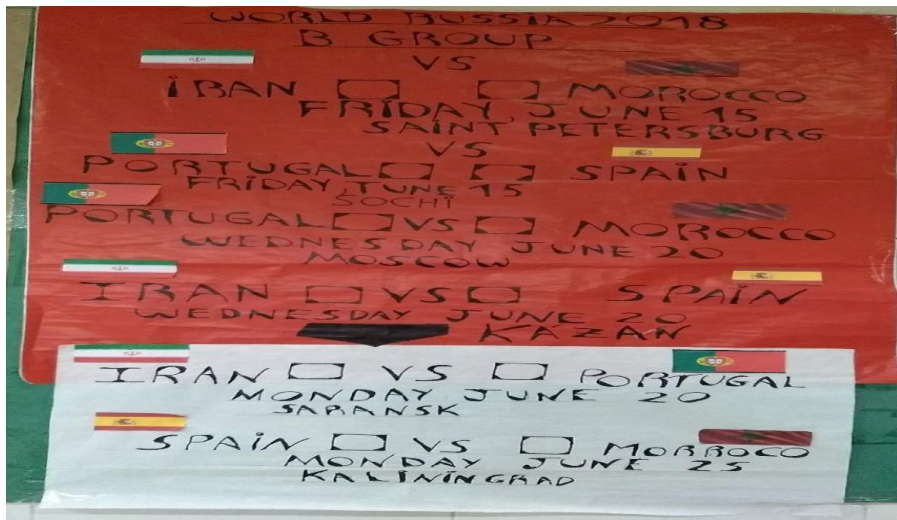 WORLD RUSSIA 2018
B GROUP
VS
iRAN MOROCCO
FRIDAY, JUNE 15
SAINT PETERSBURG
VS
PORTUGAL SPAIN
FRIDAY JUNE 15
SOCHI
PORTUGAL VS MOROCCO
WEDNESDAY JUNE 20
MOSCOW
IRAN VS SPAIN
WEDNESDAY JUNE 20
KAZAN
IRAN VS PORTUGAL
MONDAY JUNE 20
SARANSK
SPAiN VS MORROCO
MONDAY JUNE 25
KALiNiNGRAD